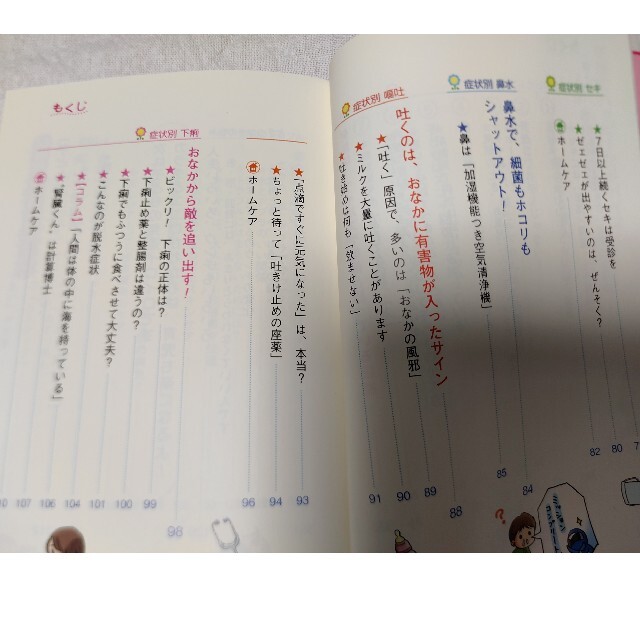 症状別 セキ
★7日以上続くセキは受診を
★ゼェゼェが出やすいのは、ぜんそく?
ホームケア
80
82
症状別 鼻水
鼻水で、細菌もホコリも
シャットアウト!
84
★鼻は「加湿機能つき空気清浄機」
85
症状別 嘔吐
吐くのは、おなかに有害物が入ったサイン
88
★「吐く」原因で、多いのは「おなかの風邪」
89
★ミルクを大量に吐くことがあります
90
★吐き始めは何も「飲ませない」
91
もくじ
★「点滴ですぐに元気になった」は、本当?
93
★ちょっと待って「吐きけ止めの座薬」
94
ホームケア
96
症状別 下痢
おなかから敵を追い出す!
98
★ビックリ! 下痢の正体は?
99
★下痢止め薬と整腸剤は違うの?
100
★下痢でもふつうに食べさせて大丈夫?
101
★こんなのが脱水症状
104
★【コラム】「人間は体の中に海を持っている」
106
★「腎臓くん」は計算博士
107
ホームケア